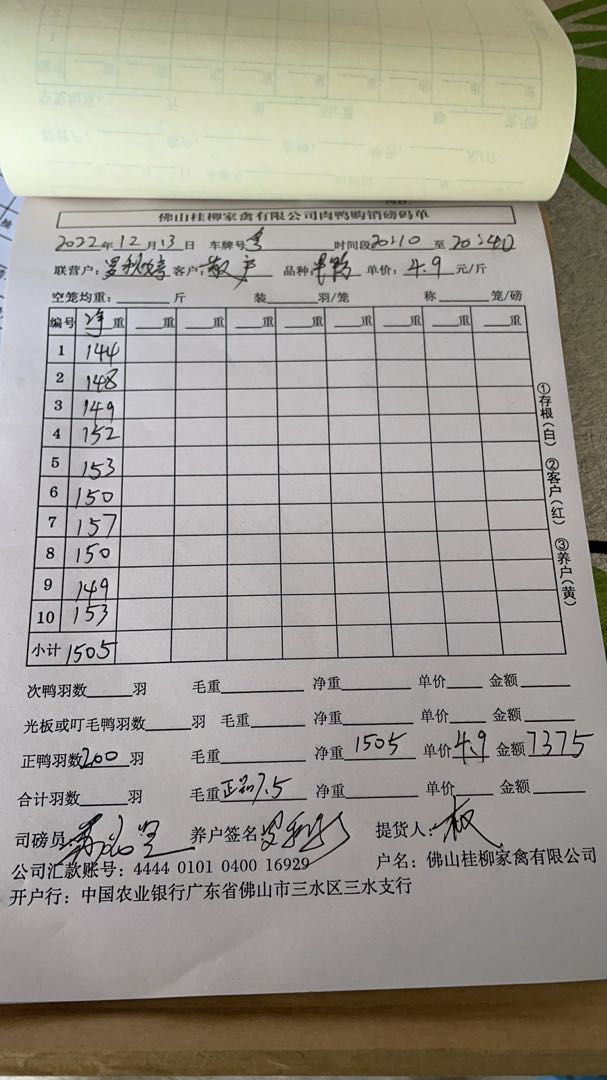 佛山桂柳家禽有限公司肉鸭购销磅码单
2022年12月13日 车牌号 时间段20:10至20:40
联营户: 客户:散户 品种: 单价:4.9元/斤
空笼均重:____斤 装____羽/笼 称____笼/磅
编号 净重 __重 __重 __重 __重 __重 __重 __重 __重
1 144
2 148
3 149
4 152
5 153
6 150
7 157
8 150
9 149
10 153
小计 1505
①存根(白) ②客户(红) ③养户(黄)
次鸭羽数____羽 毛重____ 净重____ 单价____ 金额____
光板或叮毛鸭羽数____羽 毛重____ 净重____ 单价____ 金额____
正鸭羽数200羽 毛重____ 净重1505 单价4.9 金额7375
合计羽数____羽 毛重 7.5 净重____ 单价____ 金额____
司磅员: 养户签名: 提货人:
公司汇款账号: 4444 0101 0400 16929 户名:佛山桂柳家禽有限公司
开户行:中国农业银行广东省佛山市三水区三水支行